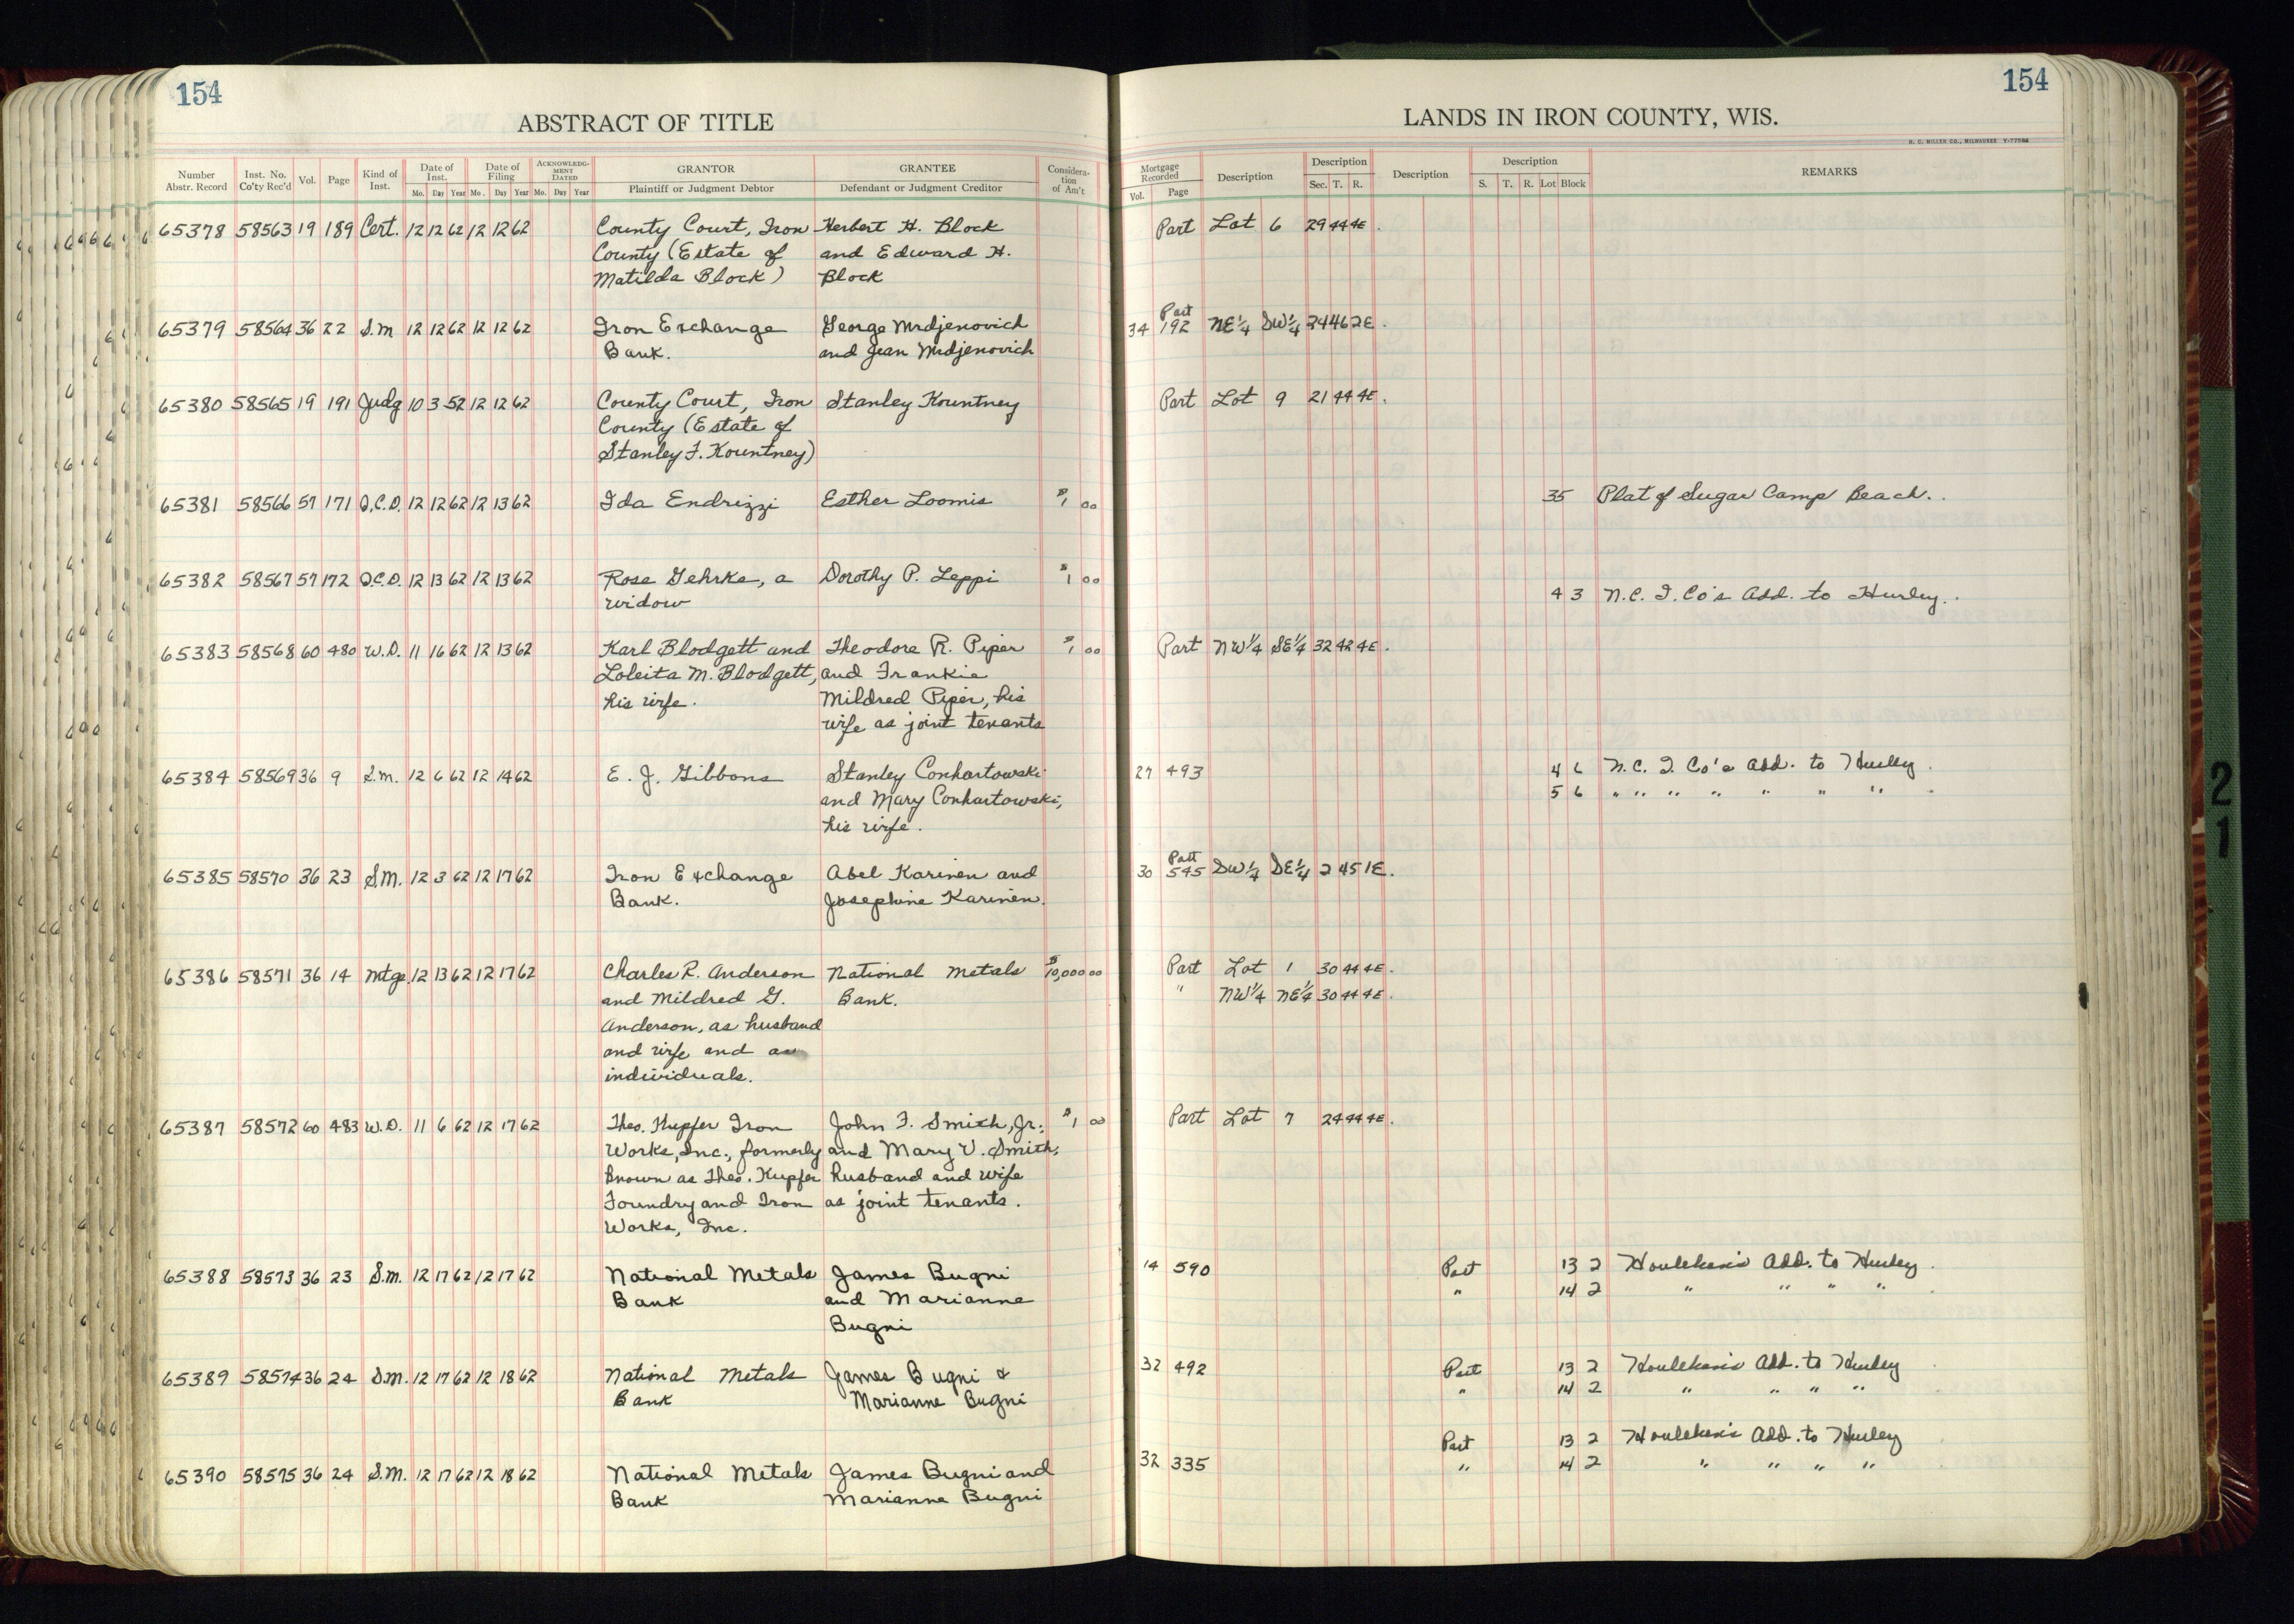 154
154
ABSTRACT OF TITLE
LANDS IN IRON COUNTY, WIS.
H. C. MILLER CO., MILWAUKEE
Number Abstr. Record Inst. No. Co'ty Rec'd Vol. Page Kind of Inst. Date of Inst. Mo. Day Year Date of Filing Mo. Day Year ACKNOWLEDG-MENT DATED Mo. Day Year GRANTOR Plaintiff or Judgment Debtor GRANTEE Defendant or Judgment Creditor Considera-tion of Am't
Mortgage Recorded Vol. Page Description Description Sec. T. R. Description Description S. T. R. Lot Block REMARKS
65378 58563 19 189 Cert. 12 12 62 12 12 62 County Court, Iron Herbert H. Block Part Lot 6 29 44 4E.
County (Estate of and Edward H.
Matilda Block) Block
65379 58564 36 22 S.M 12 12 62 12 12 62 Iron Exchange George Mrdjenovich 34 Part 192 NE¼ SW¼ 24 46 2E.
Bank. and Jean Mrdjenovich
65380 58565 19 191 Judg 10 3 52 12 12 62 County Court, Iron Stanley Kountney Part Lot 9 21 44 4E.
County (Estate of
Stanley F. Kountney)
65381 58566 57 171 Q.C.D. 12 12 62 12 13 62 Ida Endrizzi Esther Loomis $1 00 35 Plat of Sugar Camp Beach.
65382 58567 57 172 Q.C.D. 12 13 62 12 13 62 Rose Gehrke, a Dorothy P. Leppi $1 00 4 3 N.C. I. Co's Add. to Hurley.
widow
65383 58568 60 480 W.D. 11 16 62 12 13 62 Karl Blodgett and Theodore R. Piper $1 00 Part NW¼ SE¼ 32 42 4E.
Loleita M. Blodgett, and Frankie
his wife. Mildred Piper, his
wife as joint tenants
65384 58569 36 9 S.M. 12 6 62 12 14 62 E. J. Gibbons Stanley Conhartowski 27 493 4 6 N.C. I. Co's Add. to Hurley.
and Mary Conhartowski, 5 6 " " " " " " "
his wife.
65385 58570 36 23 S.M. 12 3 62 12 17 62 Iron Exchange Abel Karinen and 30 Part 545 SW¼ SE¼ 2 45 1E.
Bank. Josephine Karinen.
65386 58571 36 14 Mtge. 12 13 62 12 17 62 Charles R. Anderson National Metals $10,000 00 Part Lot 1 30 44 4E.
and Mildred G. Bank. " NW¼ NE¼ 30 44 4E.
Anderson, as husband
and wife and as
individuals.
65387 58572 60 483 W.D. 11 6 62 12 17 62 Theo. Kupfer Iron John F. Smith, Jr. $1 00 Part Lot 7 24 44 4E.
Works, Inc., formerly and Mary V. Smith,
known as Theo. Kupfer husband and wife
Foundry and Iron as joint tenants.
Works, Inc.
65388 58573 36 23 S.M. 12 17 62 12 17 62 National Metals James Bugni 14 590 Part 13 2 Houlehan's Add. to Hurley.
Bank and Marianne " 14 2 " " " "
Bugni
65389 58574 36 24 S.M. 12 17 62 12 18 62 National Metals James Bugni & 32 492 Part 13 2 Houlehan's Add. to Hurley
Bank Marianne Bugni " 14 2 " " " "
65390 58575 36 24 S.M. 12 17 62 12 18 62 National Metals James Bugni and 32 335 Part 13 2 Houlehan's Add. to Hurley
Bank Marianne Bugni " 14 2 " " " "
21